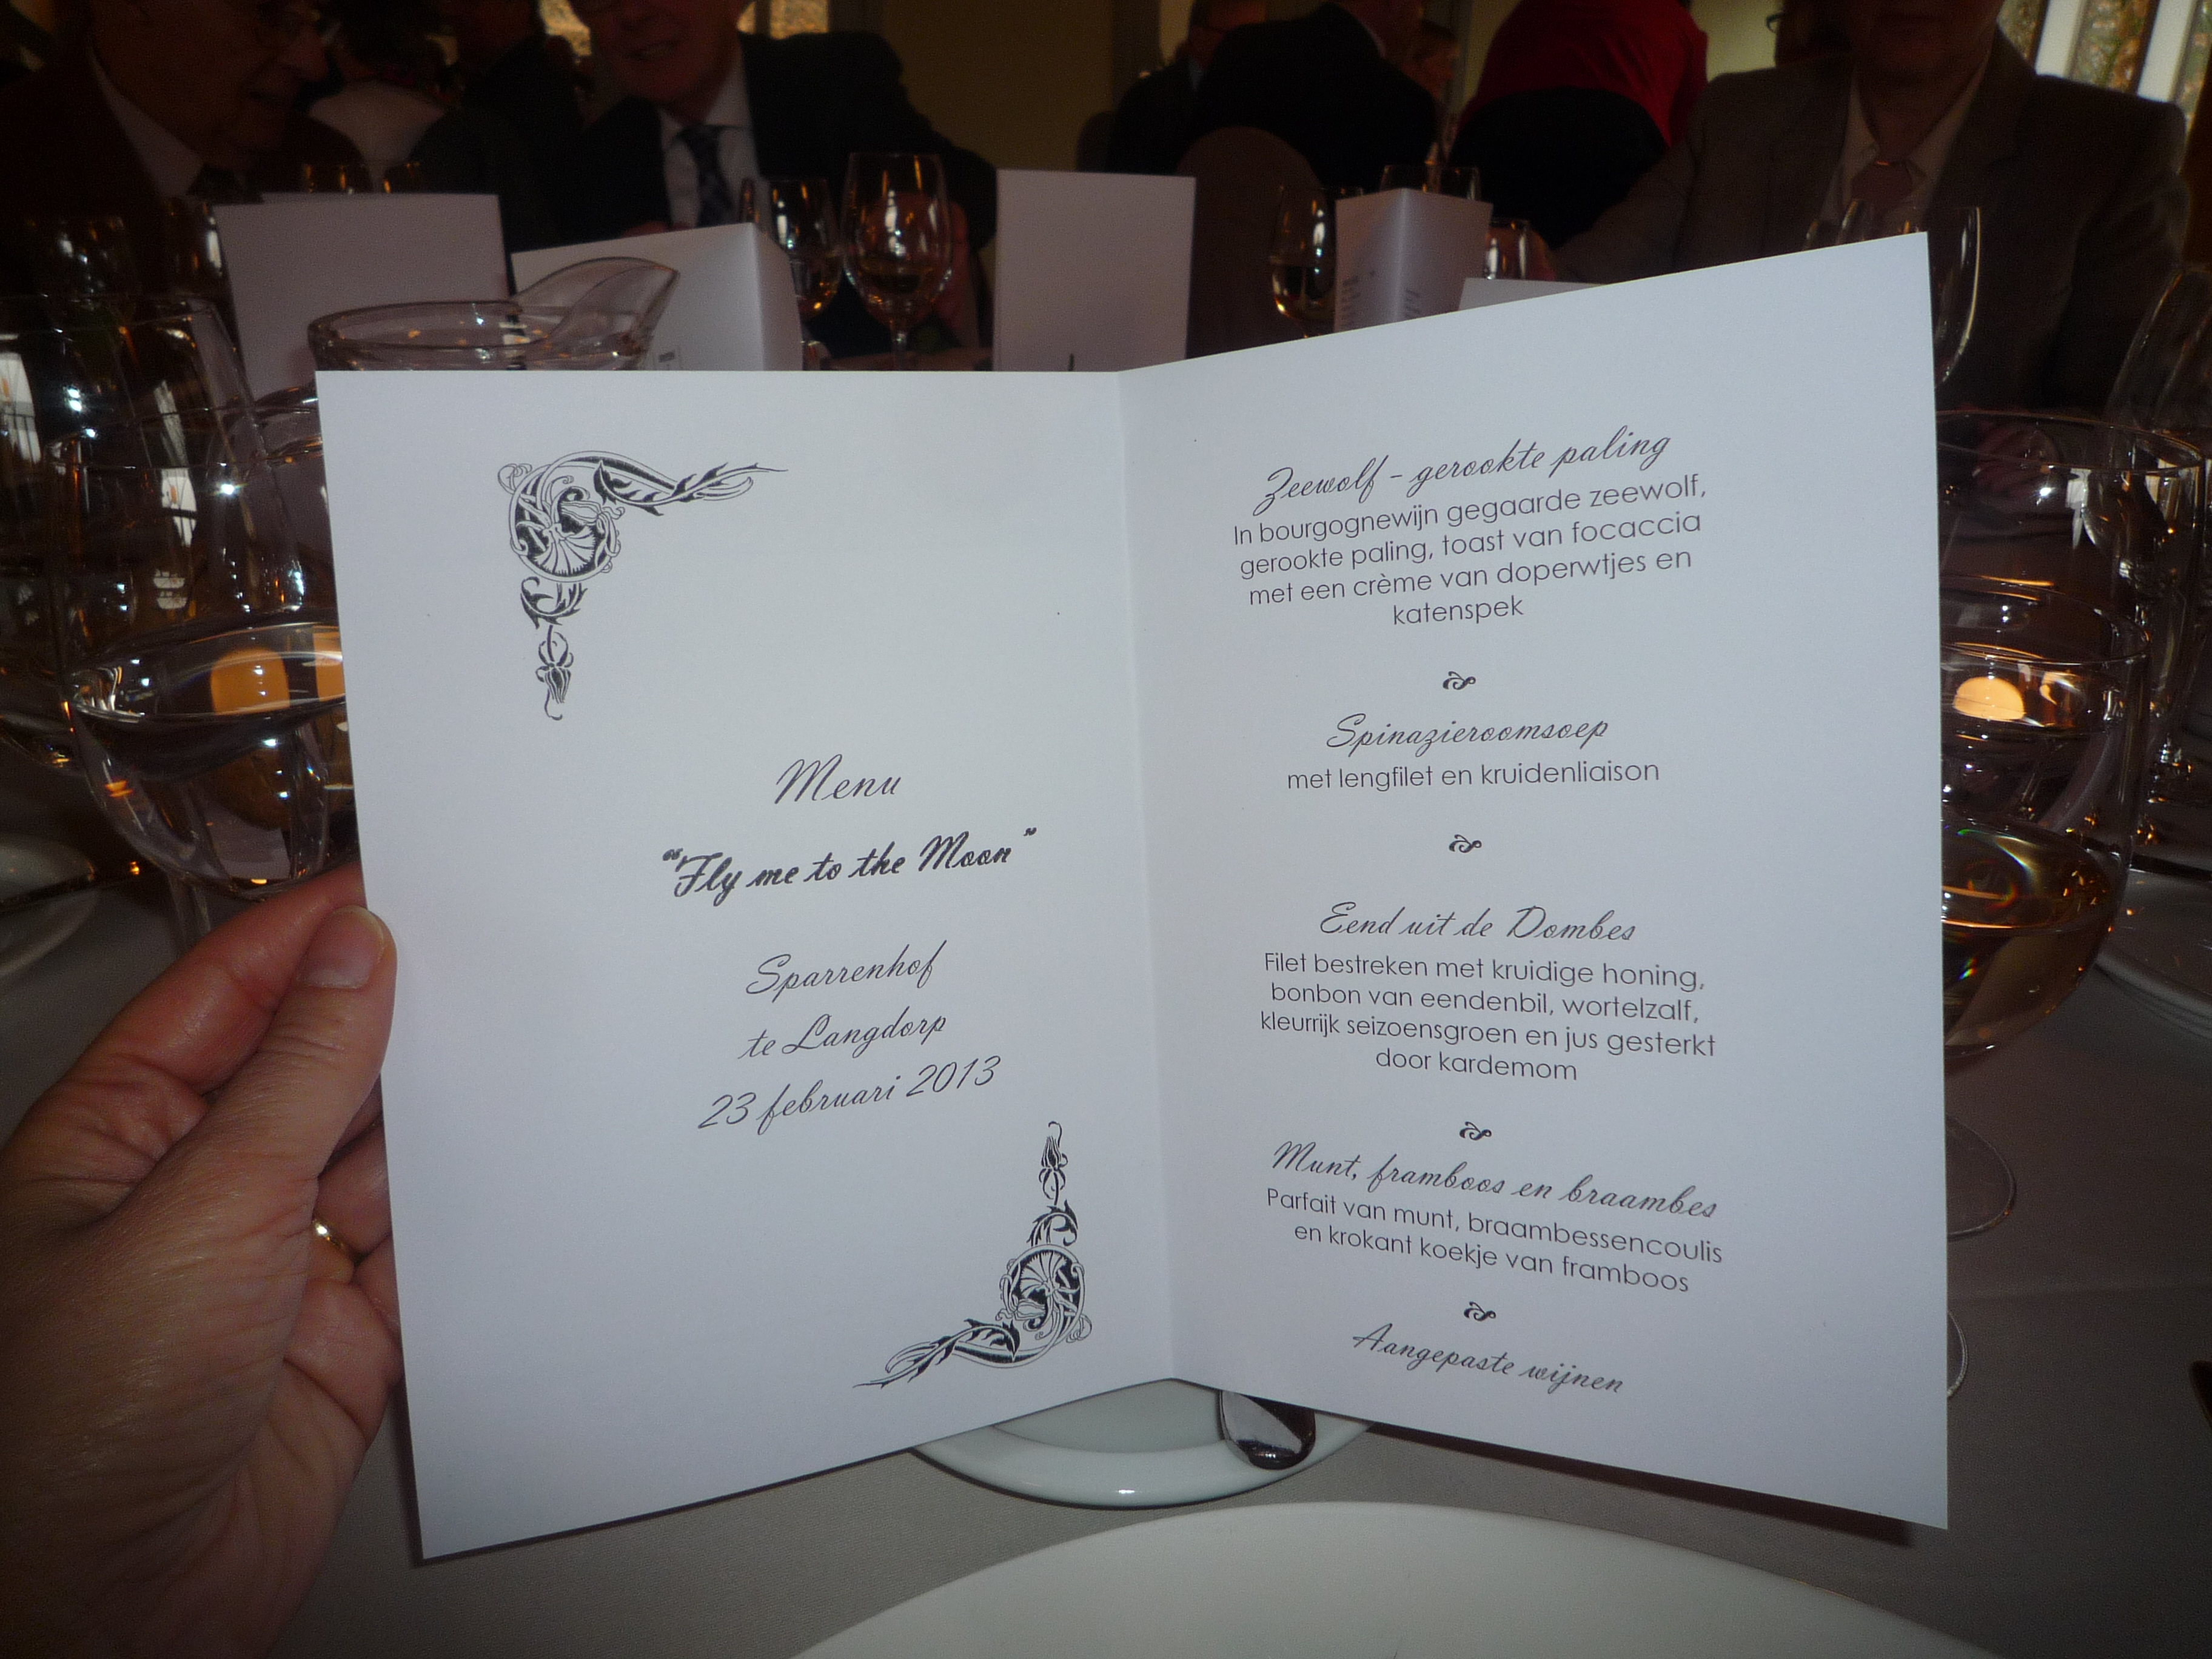 Menu
"Fly me to the Moon"
Sparrenhof
te Langdorp
23 februari 2013
Zeewolf - gerookte paling
In bourgognewijn gegaarde zeewolf,
gerookte paling, toast van focaccia
met een crème van doperwtjes en
katenspek
Spinazieroomsoep
met lengfilet en kruidenliaison
Eend uit de Dombes
Filet bestreken met kruidige honing,
bonbon van eendenbil, wortelzalf,
kleurrijk seizoensgroen en jus gesterkt
door kardemom
Munt, framboos en braambes
Parfait van munt, braambessencoulis
en krokant koekje van framboos
Aangepaste wijnen